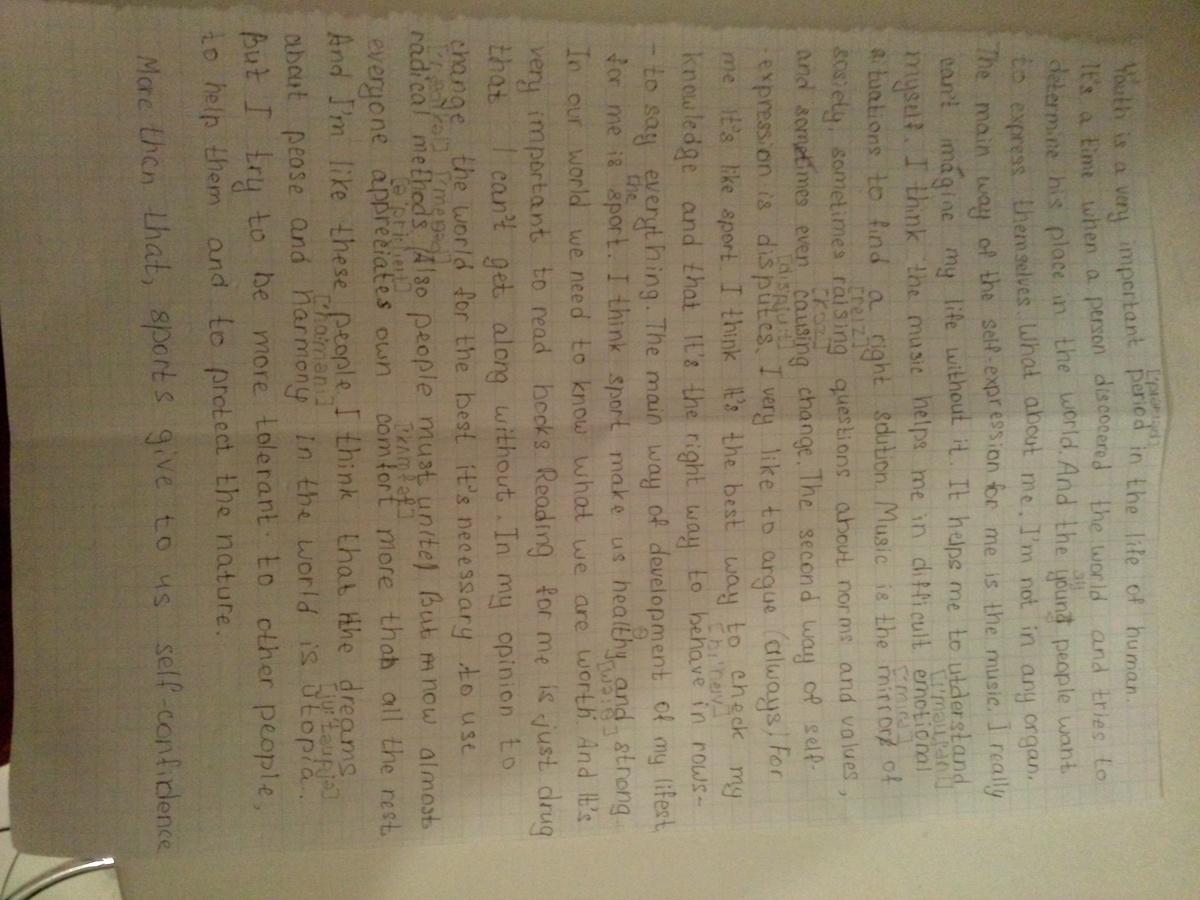 ['pıərıəd]
Youth is a very important period in the life of human.
It's a time when a person discovered the world and tries to
determine his place in the world. And the young people want
to express themselves. What about me. I'm not in any organ.
The main way of the self-expression for me is the music. I really
can't imagine my life without it. It helps me to understand
myself. I think the music helps me in difficult emotional
situations to find a right solution. Music is the mirror of
sosiety, sometimes raising questions about norms and values,
and sometimes even causing change. The second way of self-
-expression is disputes. I very like to argue (always) For
me it's like sport I think it's the best way to check my
knowledge and that it's the right way to behave in rows-
- to say everything. The main way of development of my lifest
for me is the sport. I think sport make us healthy and strong
In our world we need to know what we are worth. And it's
very important to read books Reading for me is just drug
that I can't get along without. In my opinion to
change the world for the best it's necessary to use
radical methods. (Also people must unite) But now almost
everyone appreciates own comfort more than all the rest
And I'm like these people I think that the dreams
about pease and harmony in the world is utopia.
But I try to be more tolerant to other people,
to help them and to protect the nature.
More then that, sports give to us self-confidence